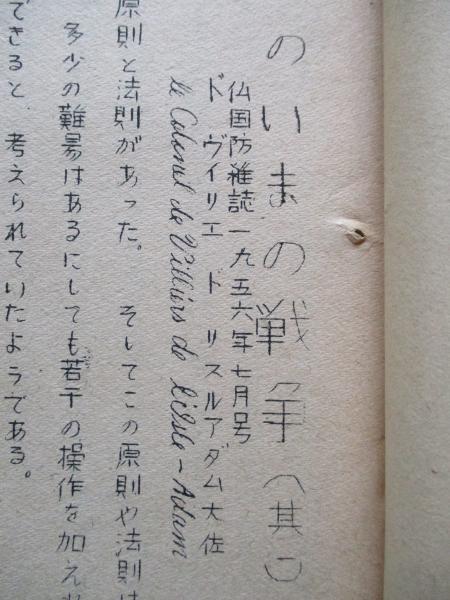 のいまの戦争(其一)
仏国防雑誌一九五六年七月号
ド ヴイリエ ド リスルアダム大佐
le Colonel de Villiers de l'Isle-Adam
原則と法則があった。 そしてこの原則や法則は
多少の難易はあるにしても若干の操作を加え
できると、考えられていたようである。